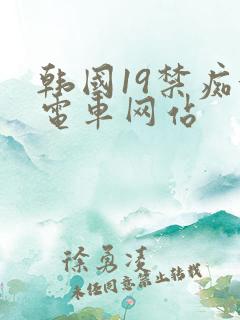 韩國19禁痴
電車网站
徐勇凌
未经同意禁止转载